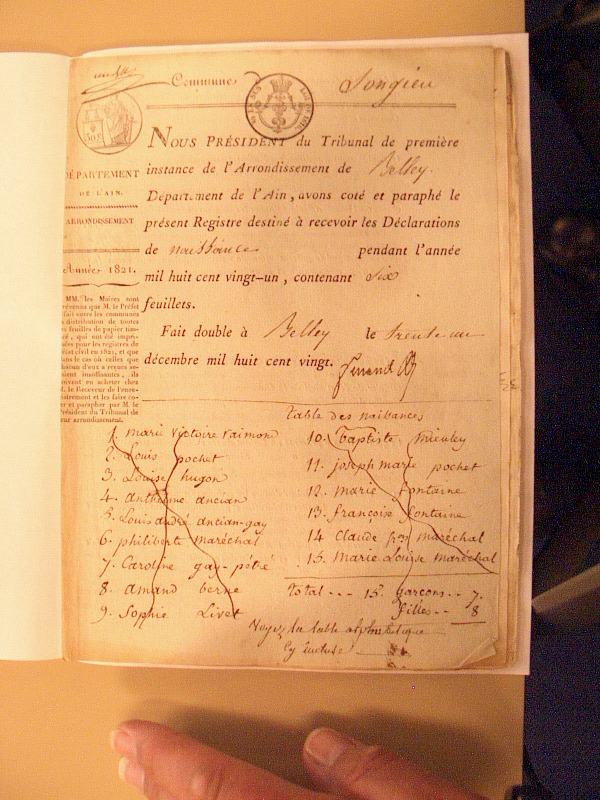 Commune Songieu
308
NOUS PRÉSIDENT du Tribunal de première
instance de l'Arrondissement de Belley.
Département de l'Ain, avons coté et paraphé le
présent Registre destiné à recevoir les Déclarations
de naissance pendant l'année
mil huit cent vingt-un, contenant six
feuillets.
Fait double à Belley le trente un
décembre mil huit cent vingt.
DÉPARTEMENT
DE L'AIN.
ARRONDISSEMENT
Année 1821.
MM. les Maires sont
prévenus que M. le Préfet
fait entre les communes
distribution de toutes
es feuilles de papier tim-
bré, qui ont été impri-
mées pour les registres de
l'état civil en 1821, et que
dans le cas où celles que
chacun d'eux a reçues se-
raient insuffisantes, ils
devront en acheter chez
M. le Receveur de l'enre-
gistrement et les faire co-
ter et parapher par M. le
Président du Tribunal de
leur arrondissement.
Table des naissances
1. marie victoire raimond
2. Louis pochet
3. Louise hugon
4. anthelme ancian
5. Louis andré ancian-gay
6. philiberte maréchal
7. Caroline gay-petré
8. amand berne
9. Sophie Livet
10. baptiste mieuley
11. joseph marie pochet
12. marie fontaine
13. françoise fontaine
14 Claude maréchal
15. Marie Louise maréchal
total --- 15. garçons -- 7.
filles -- 8
Voyez la table alphabétique
cy incluse